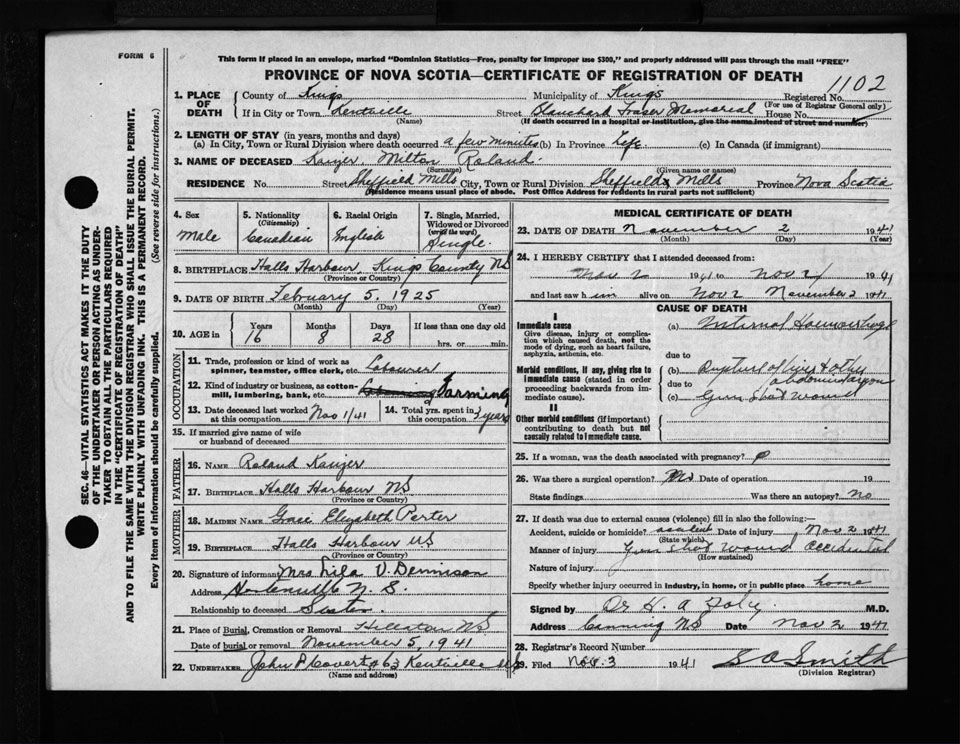 FORM 6
This form if placed in an envelope, marked "Dominion Statistics—Free, penalty for improper use $300," and properly addressed will pass through the mail "FREE"
PROVINCE OF NOVA SCOTIA—CERTIFICATE OF REGISTRATION OF DEATH
1102
1. PLACE OF DEATH
County of Kings Municipality of Kings Registered No.
(For use of Registrar General only)
If in City or Town Kentville Street Blanchard Fraser Memorial House No.
(Name) (If death occurred in a hospital or institution, give the name instead of street and number)
2. LENGTH OF STAY (in years, months and days)
(a) In City, Town or Rural Division where death occurred a few minutes (b) In Province Life (c) In Canada (if immigrant)
3. NAME OF DECEASED Kaizer, Milton Roland.
(Surname) (Given name or names)
RESIDENCE No. Street Sheffield Mills City, Town or Rural Division Sheffield Mills Province Nova Scotia
(Residence means usual place of abode. Post Office Address for residents in rural parts not sufficient)
4. Sex
Male
5. Nationality
(Citizenship)
Canadian
6. Racial Origin
English
7. Single, Married, Widowed or Divorced
(write the word)
Single.
8. BIRTHPLACE Halls Harbour, Kings County NS
(Province or Country)
9. DATE OF BIRTH February 5, 1925
(Month) (Day) (Year)
10. AGE in
Years Months Days If less than one day old
16 8 28 hrs. or min.
OCCUPATION
11. Trade, profession or kind of work as
spinner, teamster, office clerk, etc. Labourer
12. Kind of industry or business, as cotton-
mill, lumbering, bank, etc. Farming
13. Date deceased last worked at this occupation Nov 1/41
14. Total yrs. spent in this occupation 3 years
15. If married give name of wife
or husband of deceased
FATHER
16. NAME Roland Kaizer
17. BIRTHPLACE Halls Harbour NS
(Province or Country)
MOTHER
18. MAIDEN NAME Elizabeth Porter
19. BIRTHPLACE Halls Harbour NS
(Province or Country)
20. Signature of informant Mrs. Nila V. Dennison
Address Hortonville N. S.
Relationship to deceased Sister.
21. Place of Burial, Cremation or Removal Hillaton NS
Date of burial or removal November 5, 1941
22. UNDERTAKER John P Covert 63 Kentville NS
(Name and address)
MEDICAL CERTIFICATE OF DEATH
23. DATE OF DEATH November 2 1941
(Month) (Day) (Year)
24. I HEREBY CERTIFY that I attended deceased from:
Nov 2 1941 to Nov 2 1941
and last saw him alive on Nov 2 November 2 1941
CAUSE OF DEATH
I
Immediate cause
Give disease, injury or complication which caused death, not the mode of dying, such as heart failure, asphyxia, asthenia, etc.
(a) Internal Haemorrhage
due to
Morbid conditions, if any, giving rise to immediate cause (stated in order proceeding backwards from immediate cause).
(b) Rupture of liver & other
due to abdominal organ
(c) Gun shot wound
II
Other morbid conditions (if important) contributing to death but not causally related to immediate cause.
25. If a woman, was the death associated with pregnancy?
26. Was there a surgical operation? No Date of operation 19
State findings Was there an autopsy? No
27. If death was due to external causes (violence) fill in also the following:—
Accident, suicide or homicide? accident Date of injury Nov 2 1941
(State which)
Manner of injury Gun shot wound accidental
(How sustained)
Nature of injury
Specify whether injury occurred in industry, in home, or in public place home
Signed by Dr H. A Foley M.D.
Address Canning NS Date Nov 2 1941
28. Registrar's Record Number
29. Filed Nov. 3 1941 S A Smith
(Division Registrar)
SEC. 46—VITAL STATISTICS ACT MAKES IT THE DUTY
OF THE UNDERTAKER OR PERSON ACTING AS UNDER-
TAKER TO OBTAIN ALL THE PARTICULARS REQUIRED
IN THE "CERTIFICATE OF REGISTRATION OF DEATH"
AND TO FILE THE SAME WITH THE DIVISION REGISTRAR WHO SHALL ISSUE THE BURIAL PERMIT.
WRITE PLAINLY WITH UNFADING INK. THIS IS A PERMANENT RECORD.
Every item of information should be carefully supplied. (See reverse side for instructions.)